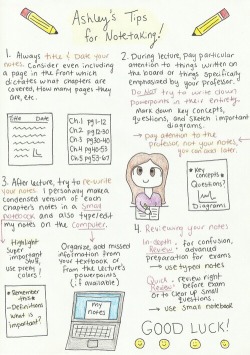 Ashley's Tips
for Notetaking!
1. Always title & Date your
notes. Consider even including
a page in the front which
dictates what chapters are
covered, How many pages they
are, etc.
Title Date
Ch.1 pg1-12
Ch.2 pg12-30
Ch.3 pg30-40
Ch.4 pg40-53
Ch.5 pg53-67
2. During lecture, pay particular
attention to things written on
the board or things specifically
emphasized by your professor.
Do NOT try to write down
powerpoints in their entirety.
Mark down Key concepts,
questions, and sketch important
diagrams.
→ pay attention to the
professor, not your notes,
you can add later.
* Key
concepts *
Questions?
Diagrams
3. After lecture, try to re-write
your notes. I personally make a
condensed version of each
chapter's notes in a small
notebook and also type/edit
my notes on the computer.
Highlight
Super
important
Stuff,
use pretty
colors!
Organize, add missed
information from
your textbook or
from the lecture's
powerpoints
(if available)
* Remember
this *
- Definitions
What is
important?
my
notes
4. Reviewing your notes
In-depth Review: for confusion, advanced
preparation for exams
→ use typed notes
Quick Review: review right
before exam
or to clear up small
questions.
→ use Small notebook
GOOD LUCK!